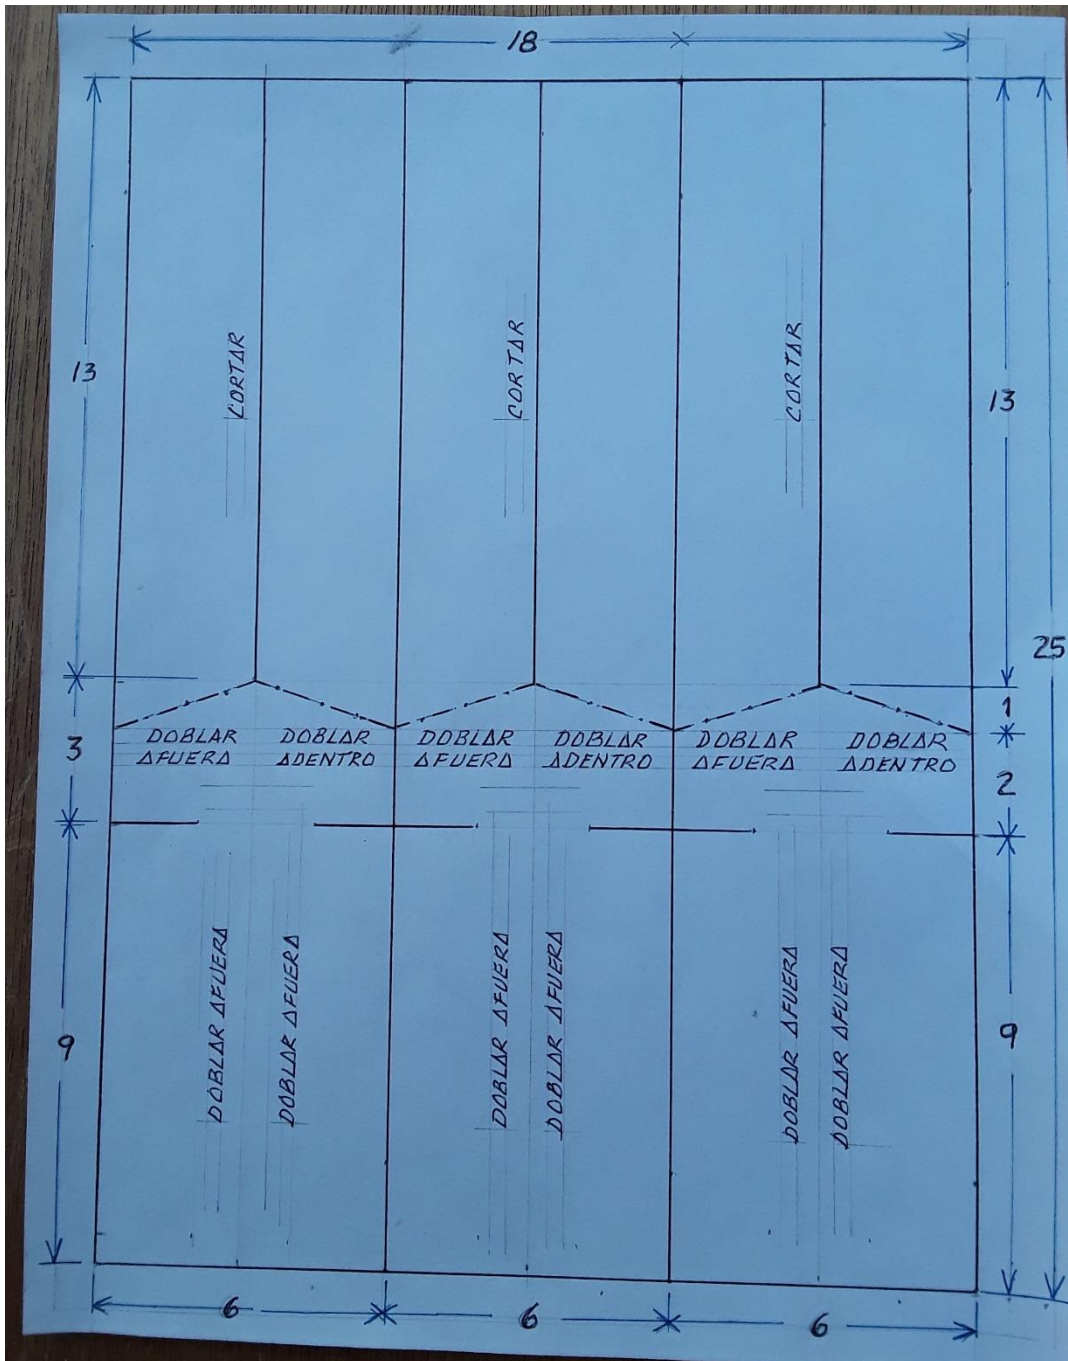 18
13
13
CORTAR
CORTAR
CORTAR
25
3
1
2
DOBLAR
AFUERA
DOBLAR
ADENTRO
DOBLAR
AFUERA
DOBLAR
ADENTRO
DOBLAR
AFUERA
DOBLAR
ADENTRO
9
9
DOBLAR AFUERA
DOBLAR AFUERA
DOBLAR AFUERA
DOBLAR AFUERA
DOBLAR AFUERA
DOBLAR AFUERA
6
6
6